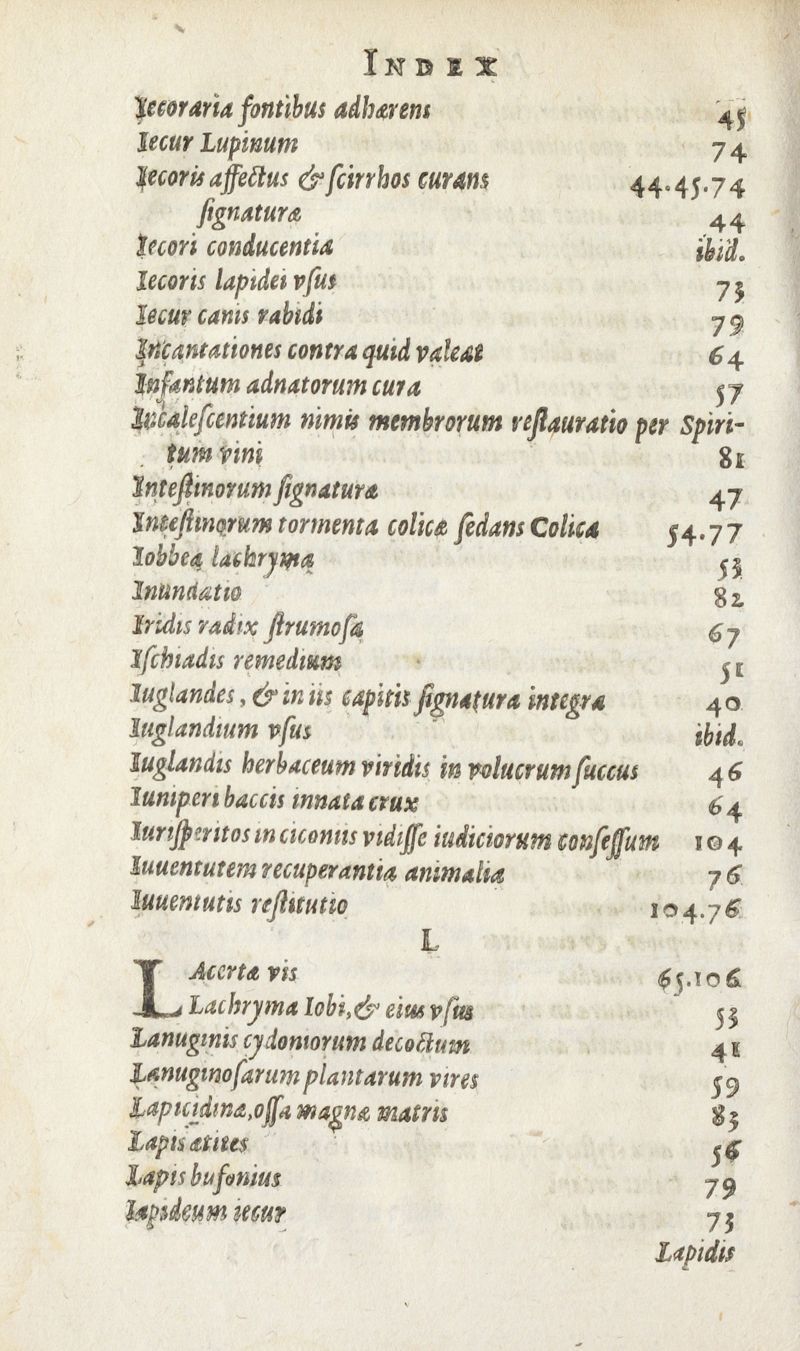 INDEX
Iecoraria fontibus adhærens 45
Iecur Lupinum 74
Iecoris affectus & ſcirrhos curans 44.45.74
ſignaturæ 44
Iecori conducentia ibid.
Iecoris lapidei vſus 73
Iecur canis rabidi 79
Incantationes contra quid valeat 64
Infantum adnatorum cura 57
Incaleſcentium nimis membrorum reſtauratio per Spiri-
tum vini 81
Inteſtinorum ſignaturæ 47
Inteſtinorum tormenta colicæ ſedans Colica 54.77
Iobbea lachryma 53
Inundatio 82
Iridis radix ſtrumoſa 67
Iſchiadis remedium 51
Iuglandes, & in iis capitis ſignatura integra 40
Iuglandium vſus ibid.
Iuglandis herbaceum viridis in volucrum ſuccus 46
Iuniperi baccis innata crux 64
Iuriſperitos in ciconiis vidiſſe iudiciorum conſeſſum 104
Iuuentutem recuperantia animalia 76
Iuuentutis reſtitutio 104.76
L
LAcertæ vis 65.106
Lachryma Iobi, & eius vſus 53
Lanuginis cydoniorum decoctum 41
Lanuginoſarum plantarum vires 59
Lapicidinæ, oſſa magnæ matris 83
Lapis ætites 56
Lapis bufonius 79
Lapideum iecur 73
Lapidis